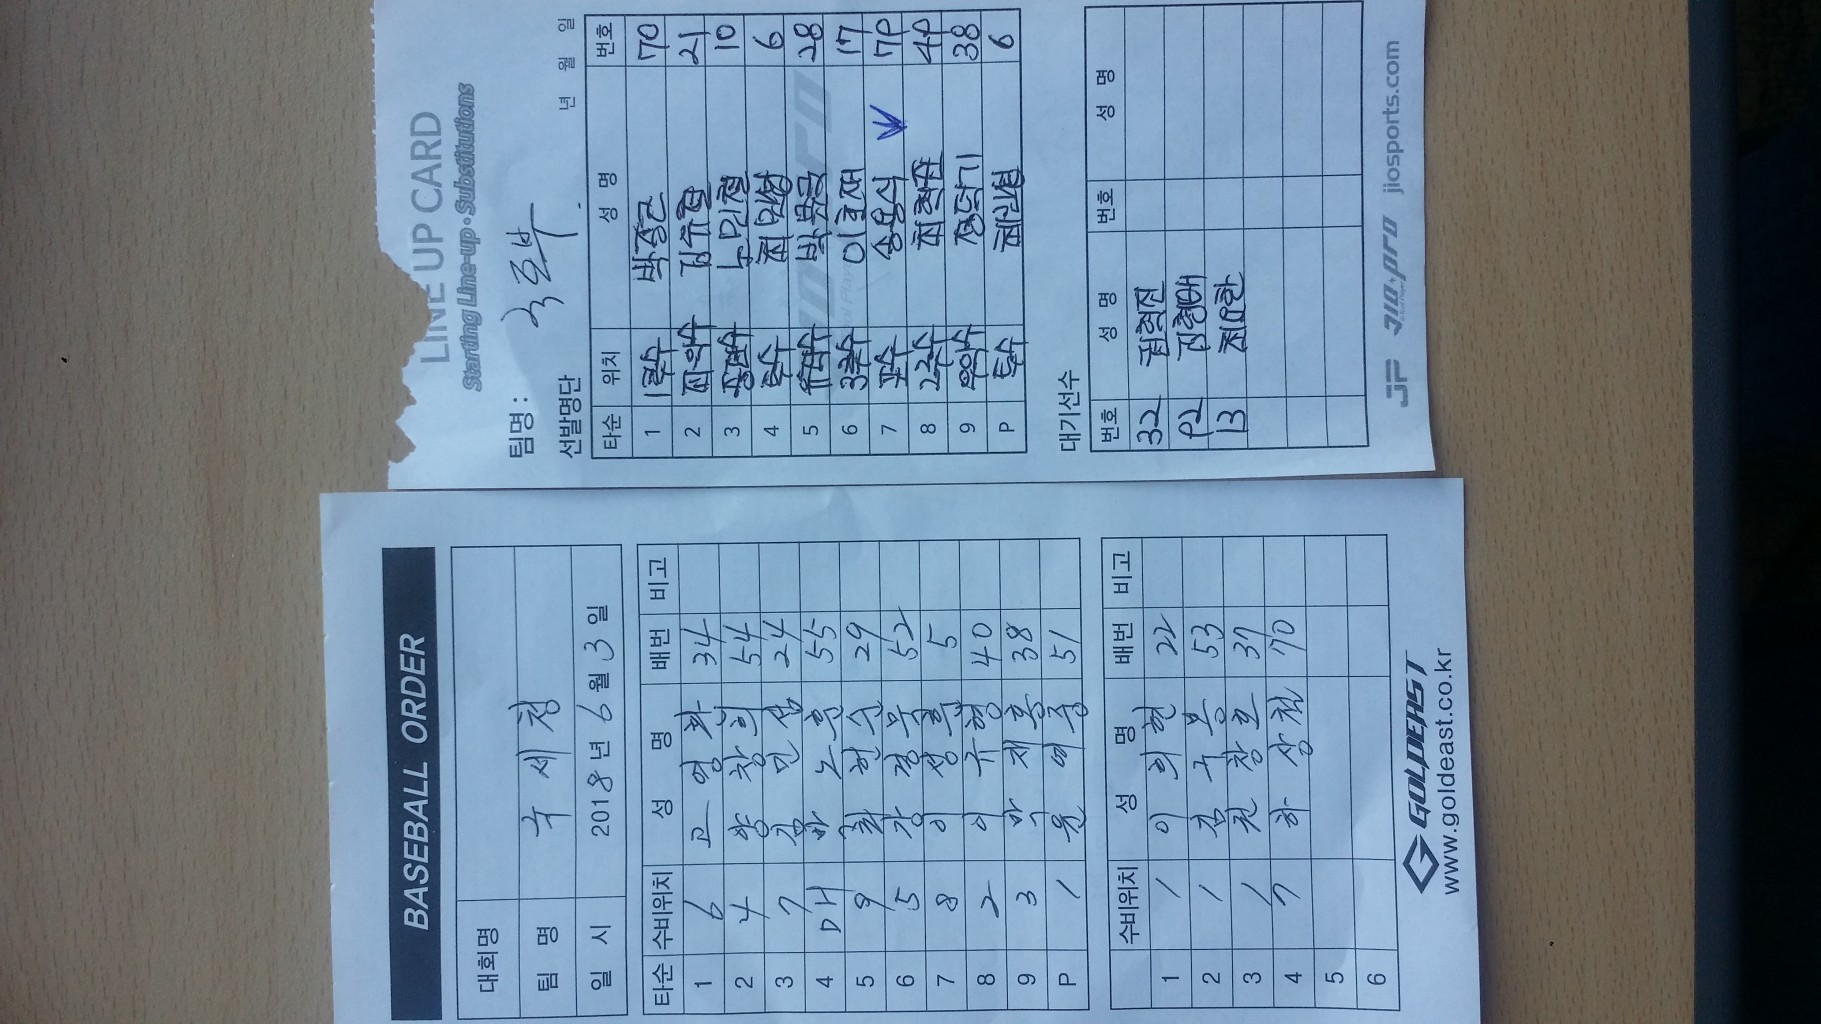 LINE UP CARD
Starting Line-up • Substitutions
팀명 : 국토부
선발명단 년 월 일
타순 위치 성 명 번호
1 1루수 박종근 70
2 좌익수 김유철 21
3 중견수 노민철 10
4 투수 최민성 6
5 유격수 28
6 3루수 이호재 17
7 포수 송용식
8 2루수
9 우익수 38
P 투수 6
대기선수
번호 성 명 번호 성 명
32
13 최요한
JP JIO+PRO jiosports.com
BASEBALL ORDER
대회명
팀 명 국세청
일 시 2018년 6월 3일
타순 수비위치 성 명 배번 비고
1 6 고영화 34
2 4 황창희 54
3 7 김민섭 24
4 DH 박노훈 55
5 9 29
6 5 강경우 52
7 8 이상혁 5
8 2 이규형 40
9 3 박재홍 38
P 1 51
수비위치 성 명 배번 비고
1 1 이희현 22
2 1 김구봉 53
3 1 권창호 37
4 7 하상천 70
5
6
GOLDEAST
www.goldeast.co.kr